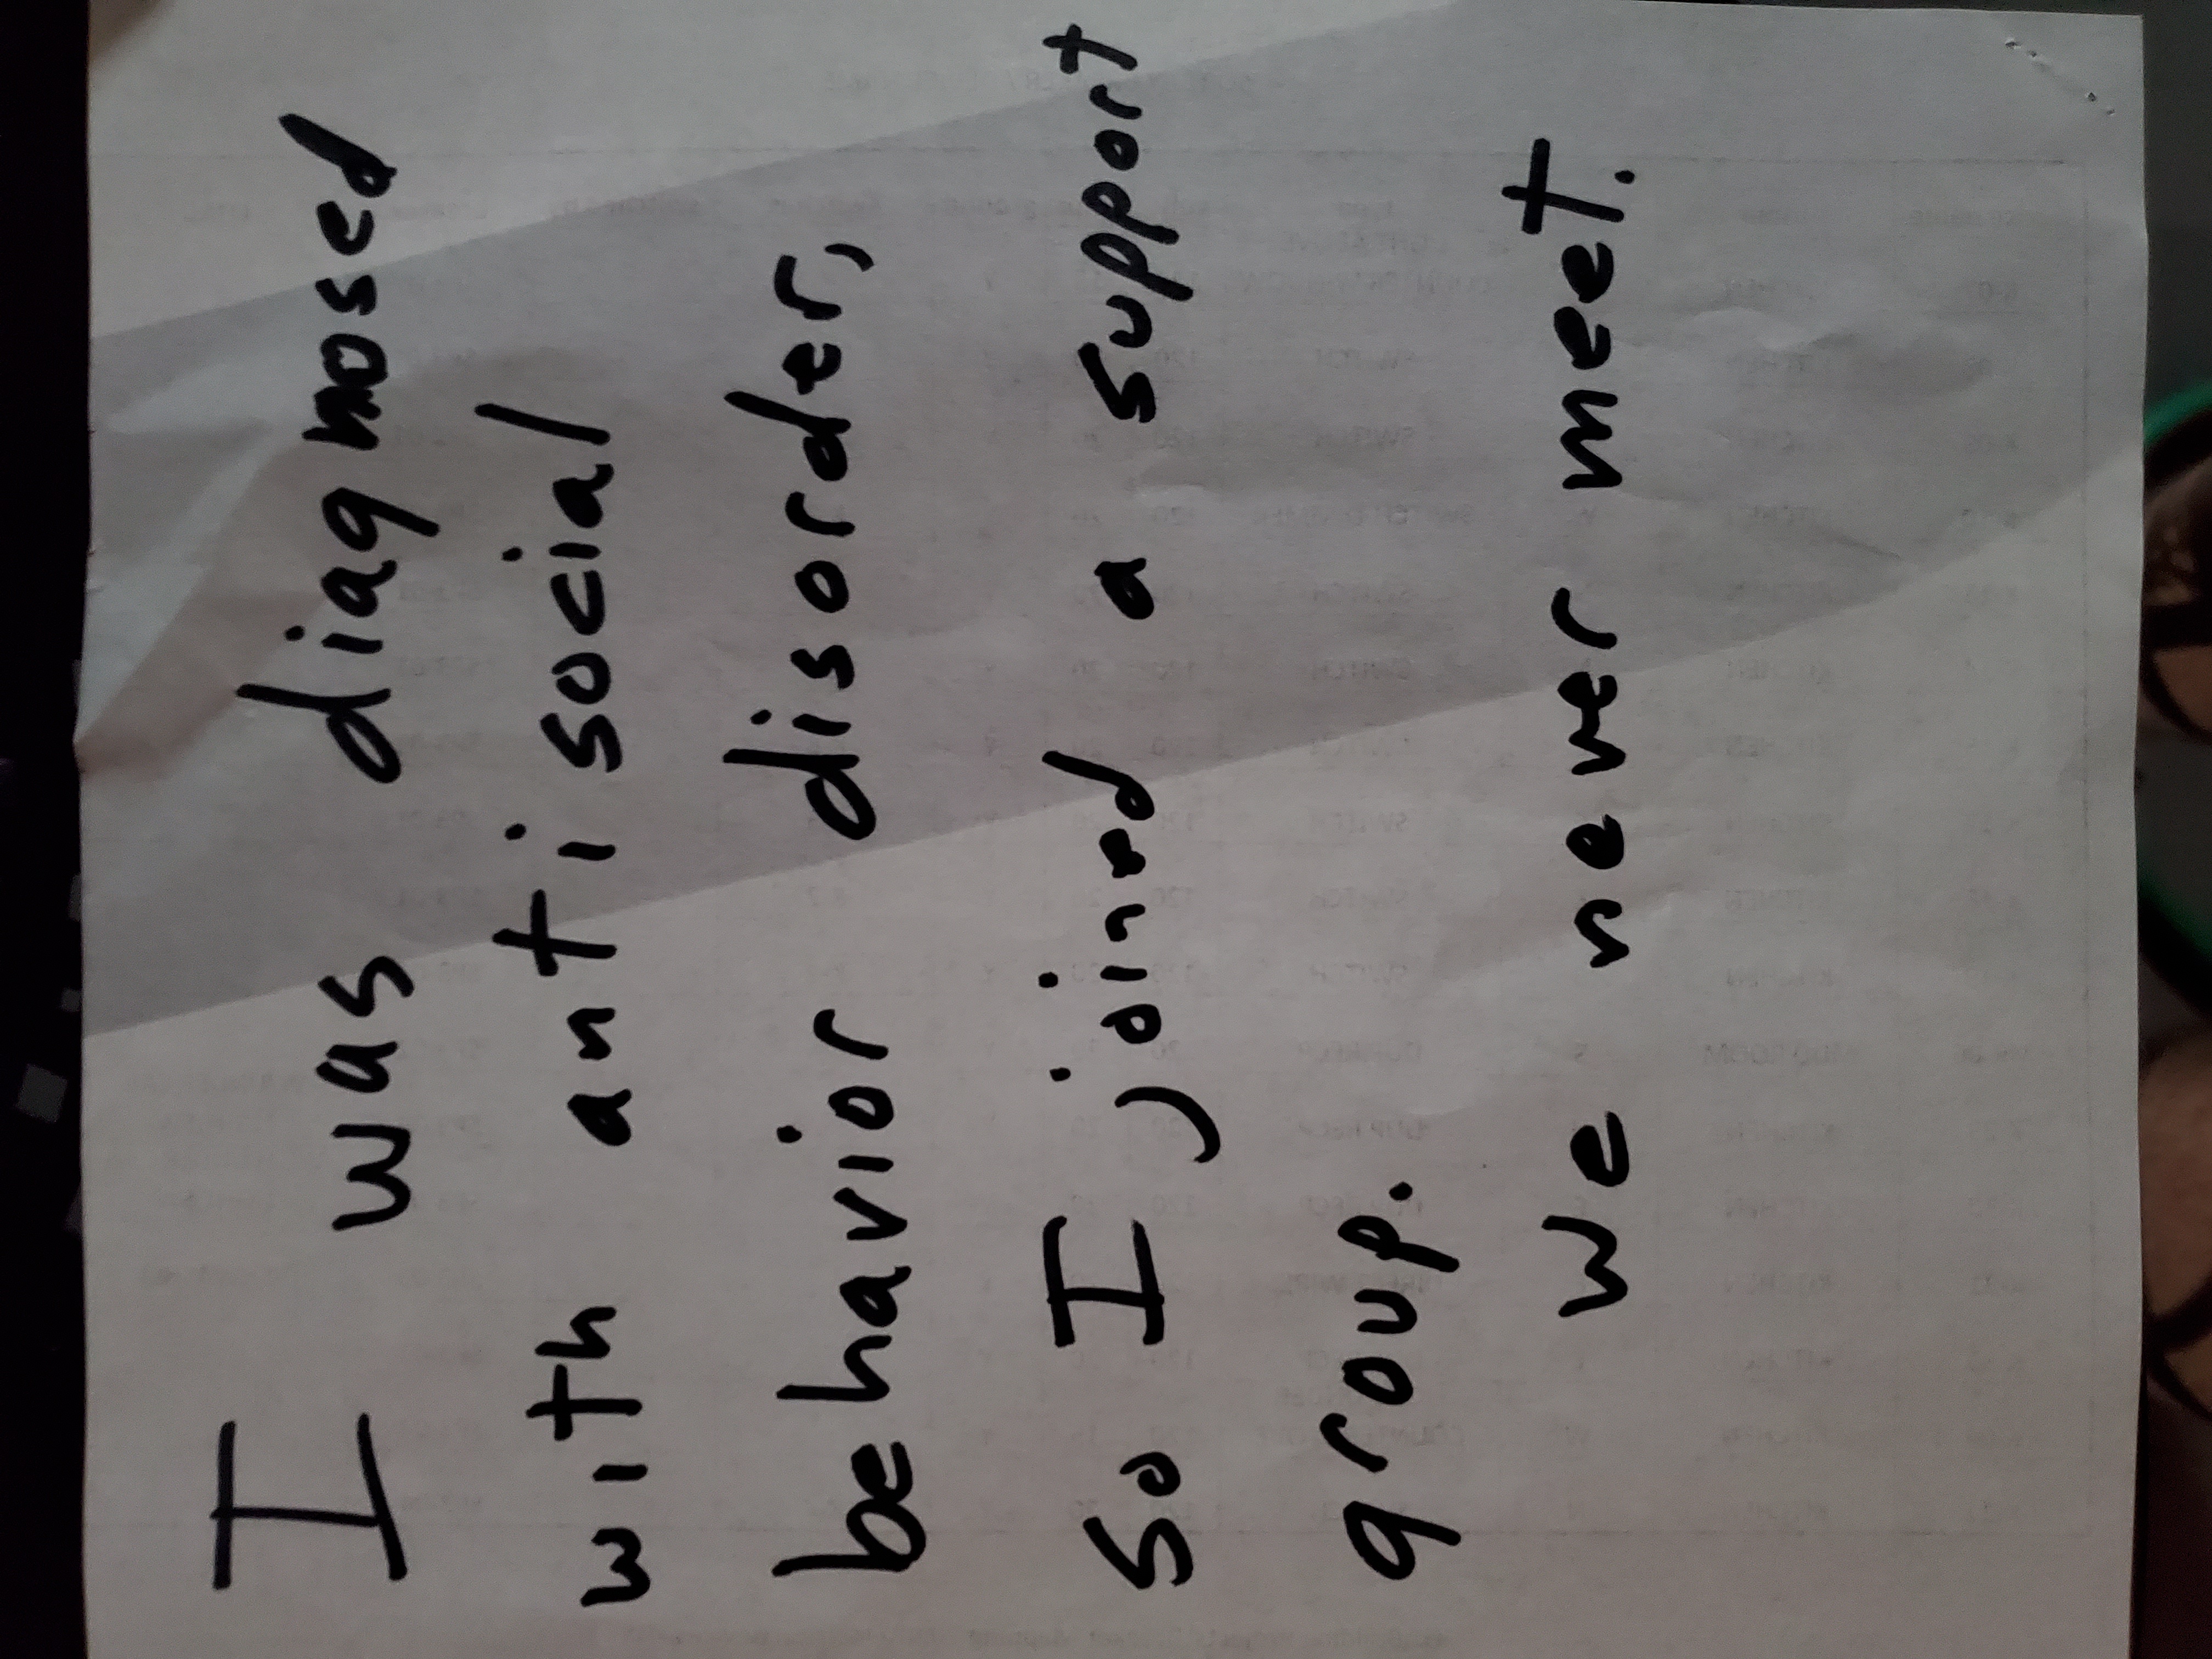 I was diagnosed
with anti social
behavior disorder,
so I joined a support
group.
we never meet.